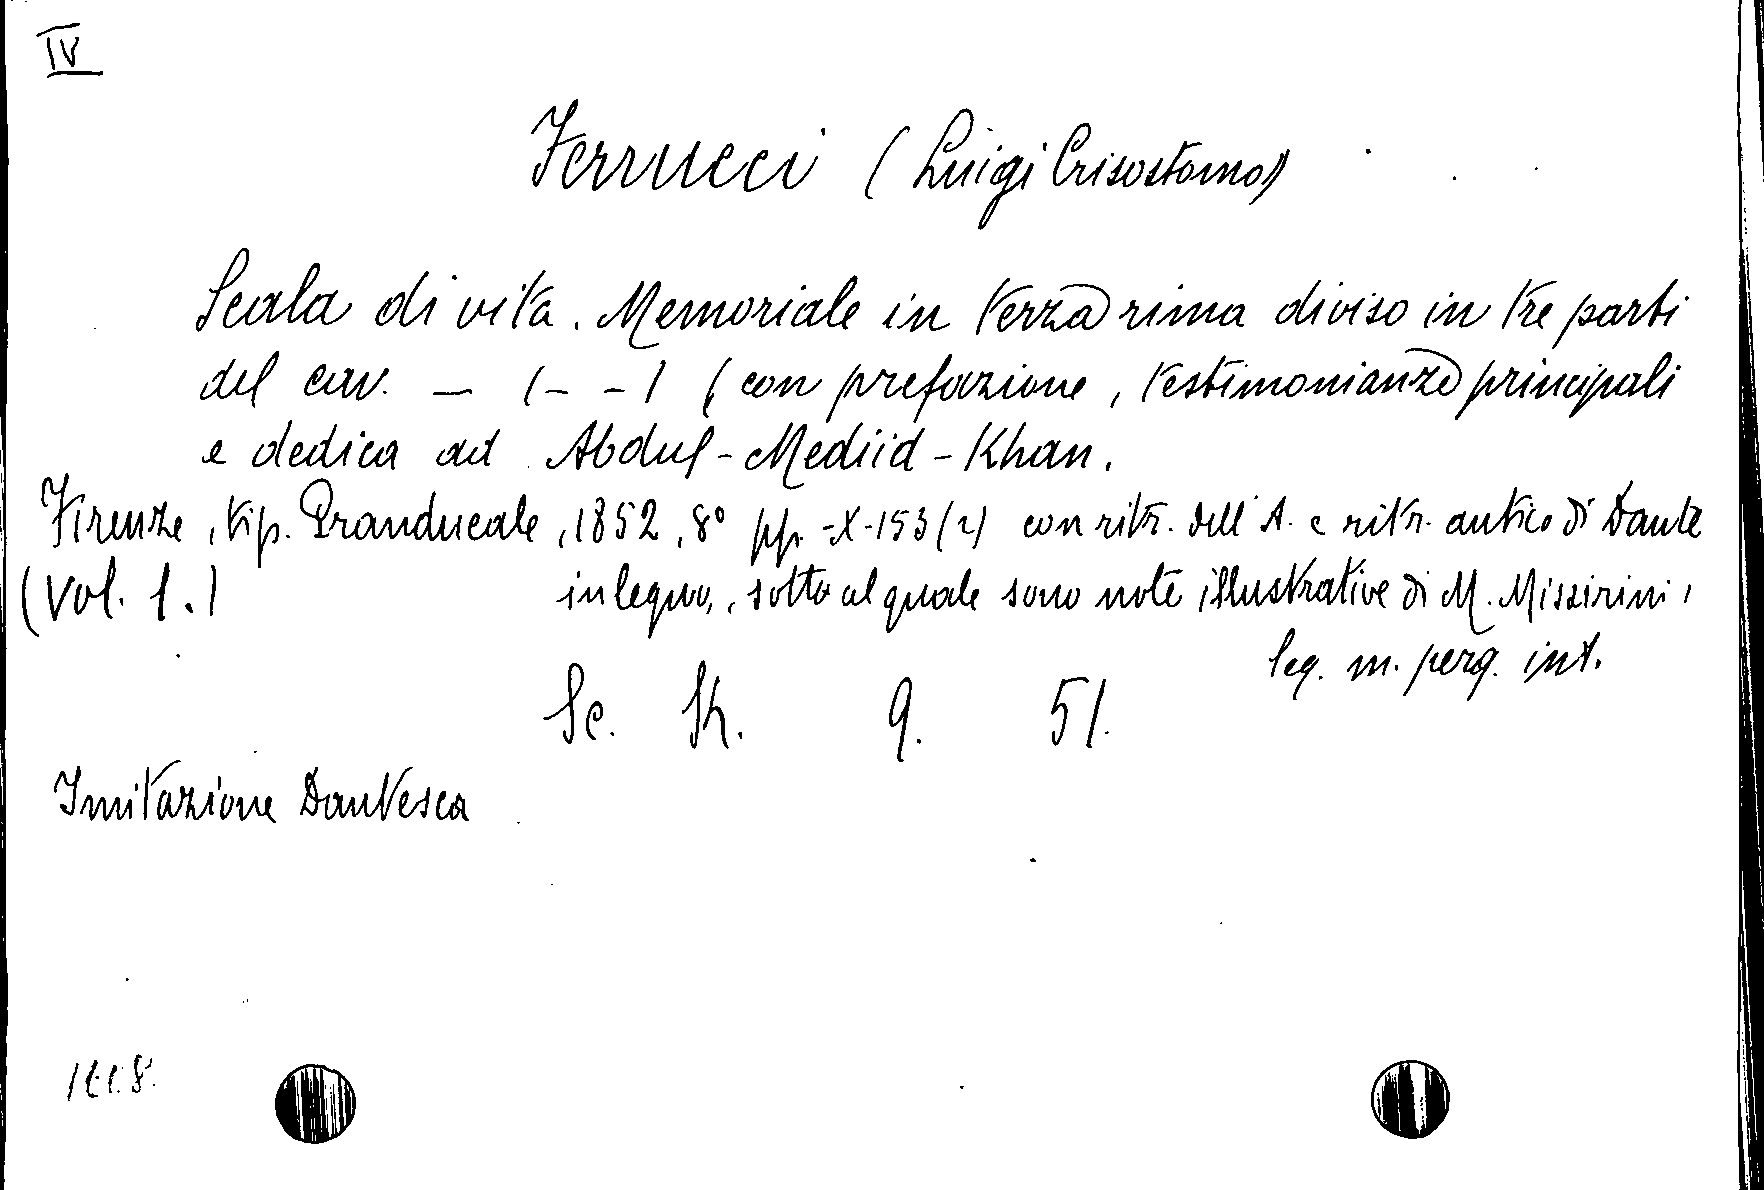 IV
Ferrucci (Luigi Crisostomo)
Scala di vita. Memoriale in terza rima diviso in tre parti
del cav. — (- -) (con prefazione, testimonianze principali
e dedica ad Abdul-Mediid-Khan.
Firenze, tip. Granducale, 1852, 8° pp. -X-153 (2) con ritr. dell'A. e ritr. antico di Dante
(Vol. 1.) in legno, sotto al quale sono note illustrative di M. Missirini,
leg. m. perg. int.
Sc. 9. 51.
Imitazione Dantesca